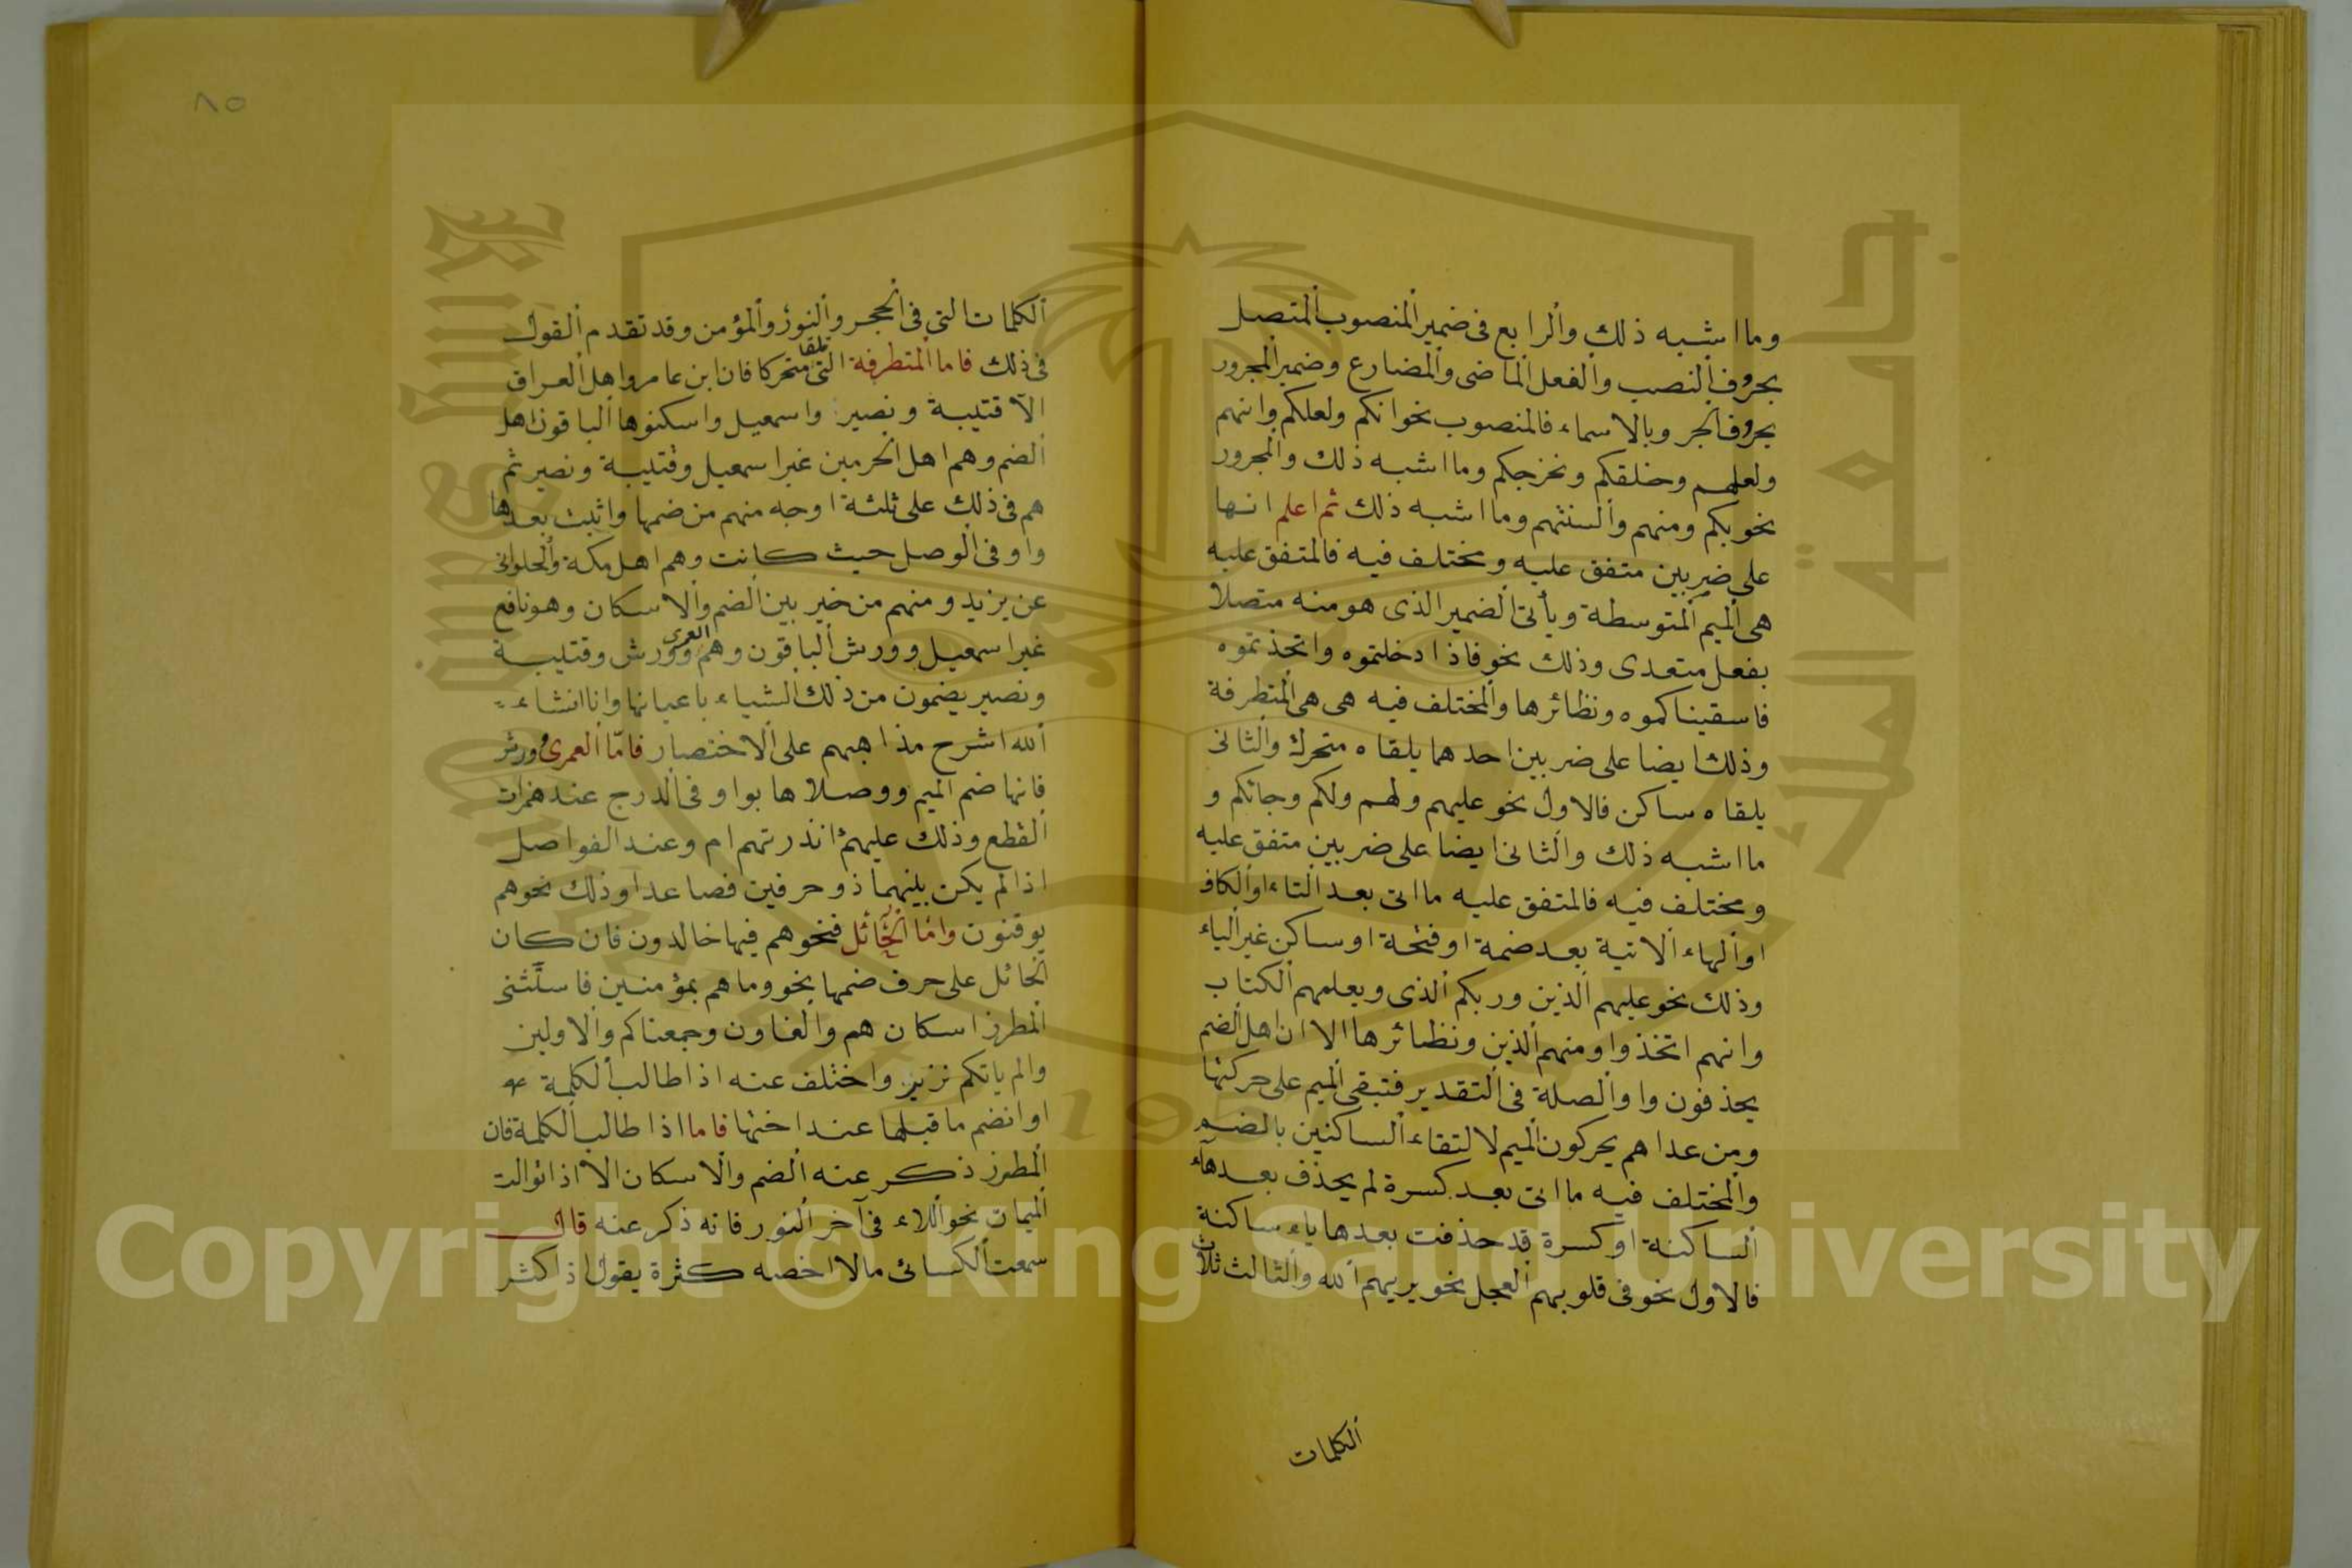 وما اشبه ذلك والرابع فى ضمير المنصوب المتصل
بحروف النصب والفعل الماضى والمضارع وضمير المجرور
بحروف الجر وبالاسماء فالمنصوب نحو انكم ولعلكم وانهم
ولعلهم وخلقكم ونخرجكم وما اشبه ذلك والمجرور
نحو بكم ومنهم والسنتهم وما اشبه ذلك ثم اعلم انها
على ضربين متفق عليه ومختلف فيه فالمتفق عليه
هى الميم المتوسطة ويأتى الضمير الذى هو منه متصلا
بفعل متعدى وذلك نحو فاذا دخلتموه واتخذتموه
فاسقيناكموه ونظائرها والمختلف فيه هى هى المتطرفة
وذلك ايضا على ضربين احدهما يلقاه متحرك والثانى
يلقاه ساكن فالاول نحو عليهم ولهم ولكم وجائكم و
ما اشبه ذلك والثانى ايضا على ضربين متفق عليه
ومختلف فيه فالمتفق عليه ما اتى بعد التاء او الكاف
او الهاء الاتية بعد ضمة او فتحة او ساكن غير الياء
وذلك نحو عليهم الذين وربكم الذى ويعلمهم الكتاب
وانهم اتخذوا ومنهم الذين ونظائرها الا ان اهل الضم
يحذفون واو الصلة فى التقدير فتبقى الميم على حركتها
ومن عداهم يحركون الميم لالتقاء الساكنين بالضم
والمختلف فيه ما اتى بعد كسرة لم يحذف بعدها
الساكنة او كسرة قد حذفت بعدها ياء ساكنة
فالاول نحو فى قلوبهم العجل نحو يريهم الله والثالث ثلاث
الكلمات
٨٥
الكلمات التى فى الحجر والنور والمؤمن وقد تقدم القول
فى ذلك فاما المتطرفة التى تلقا متحركا فان ابن عامر واهل العراق
الا قتيبة ونصير واسمعيل واسكنوها الباقون اهل
الضم وهم اهل الحرمين غير اسمعيل وقتيبة ونصير ثم
هم فى ذلك على ثلثة اوجه منهم من ضمها واثبت بعدها
واو فى الوصل حيث كانت وهم اهل مكة والحلوانى
عن يزيد ومنهم من خير بين الضم والاسكان وهو نافع
غير اسمعيل وورش الباقون وهم العمرى وورش وقتيبة
ونصير يضمون من ذلك الشياء باعيانها وانا انشاء
الله اشرح مذاهبهم على الاختصار فامّا العمرى وورش
فانها ضم الميم ووصلاها بواو فى الدرج عند همزات
القطع وذلك عليهم انذرتهم ام وعند الفواصل
اذا لم يكن بينهما ذو حرفين فصاعدا وذلك نحوهم
يوقنون واما الحائل فنحوهم فيها خالدون فان كان
الحائل على حرف ضمها نحو وما هم بمؤمنين فاستثنى
المطرز اسكان هم والغاون وجمعناكم والاولين
والم ياتكم نزير واختلف عنه اذا طالب الكلمة
او انضم ما قبلها عند اختها فاما اذا طالب الكلمة فان
المطرز ذكر عنه الضم والاسكان الا اذا توالت
الميمات نحو اللاء فى آخر النور فانه ذكر عنه قال
سمعت الكسائى مالا اخصه كثرة يقول اذ اكثر
Copyright © King Saud University